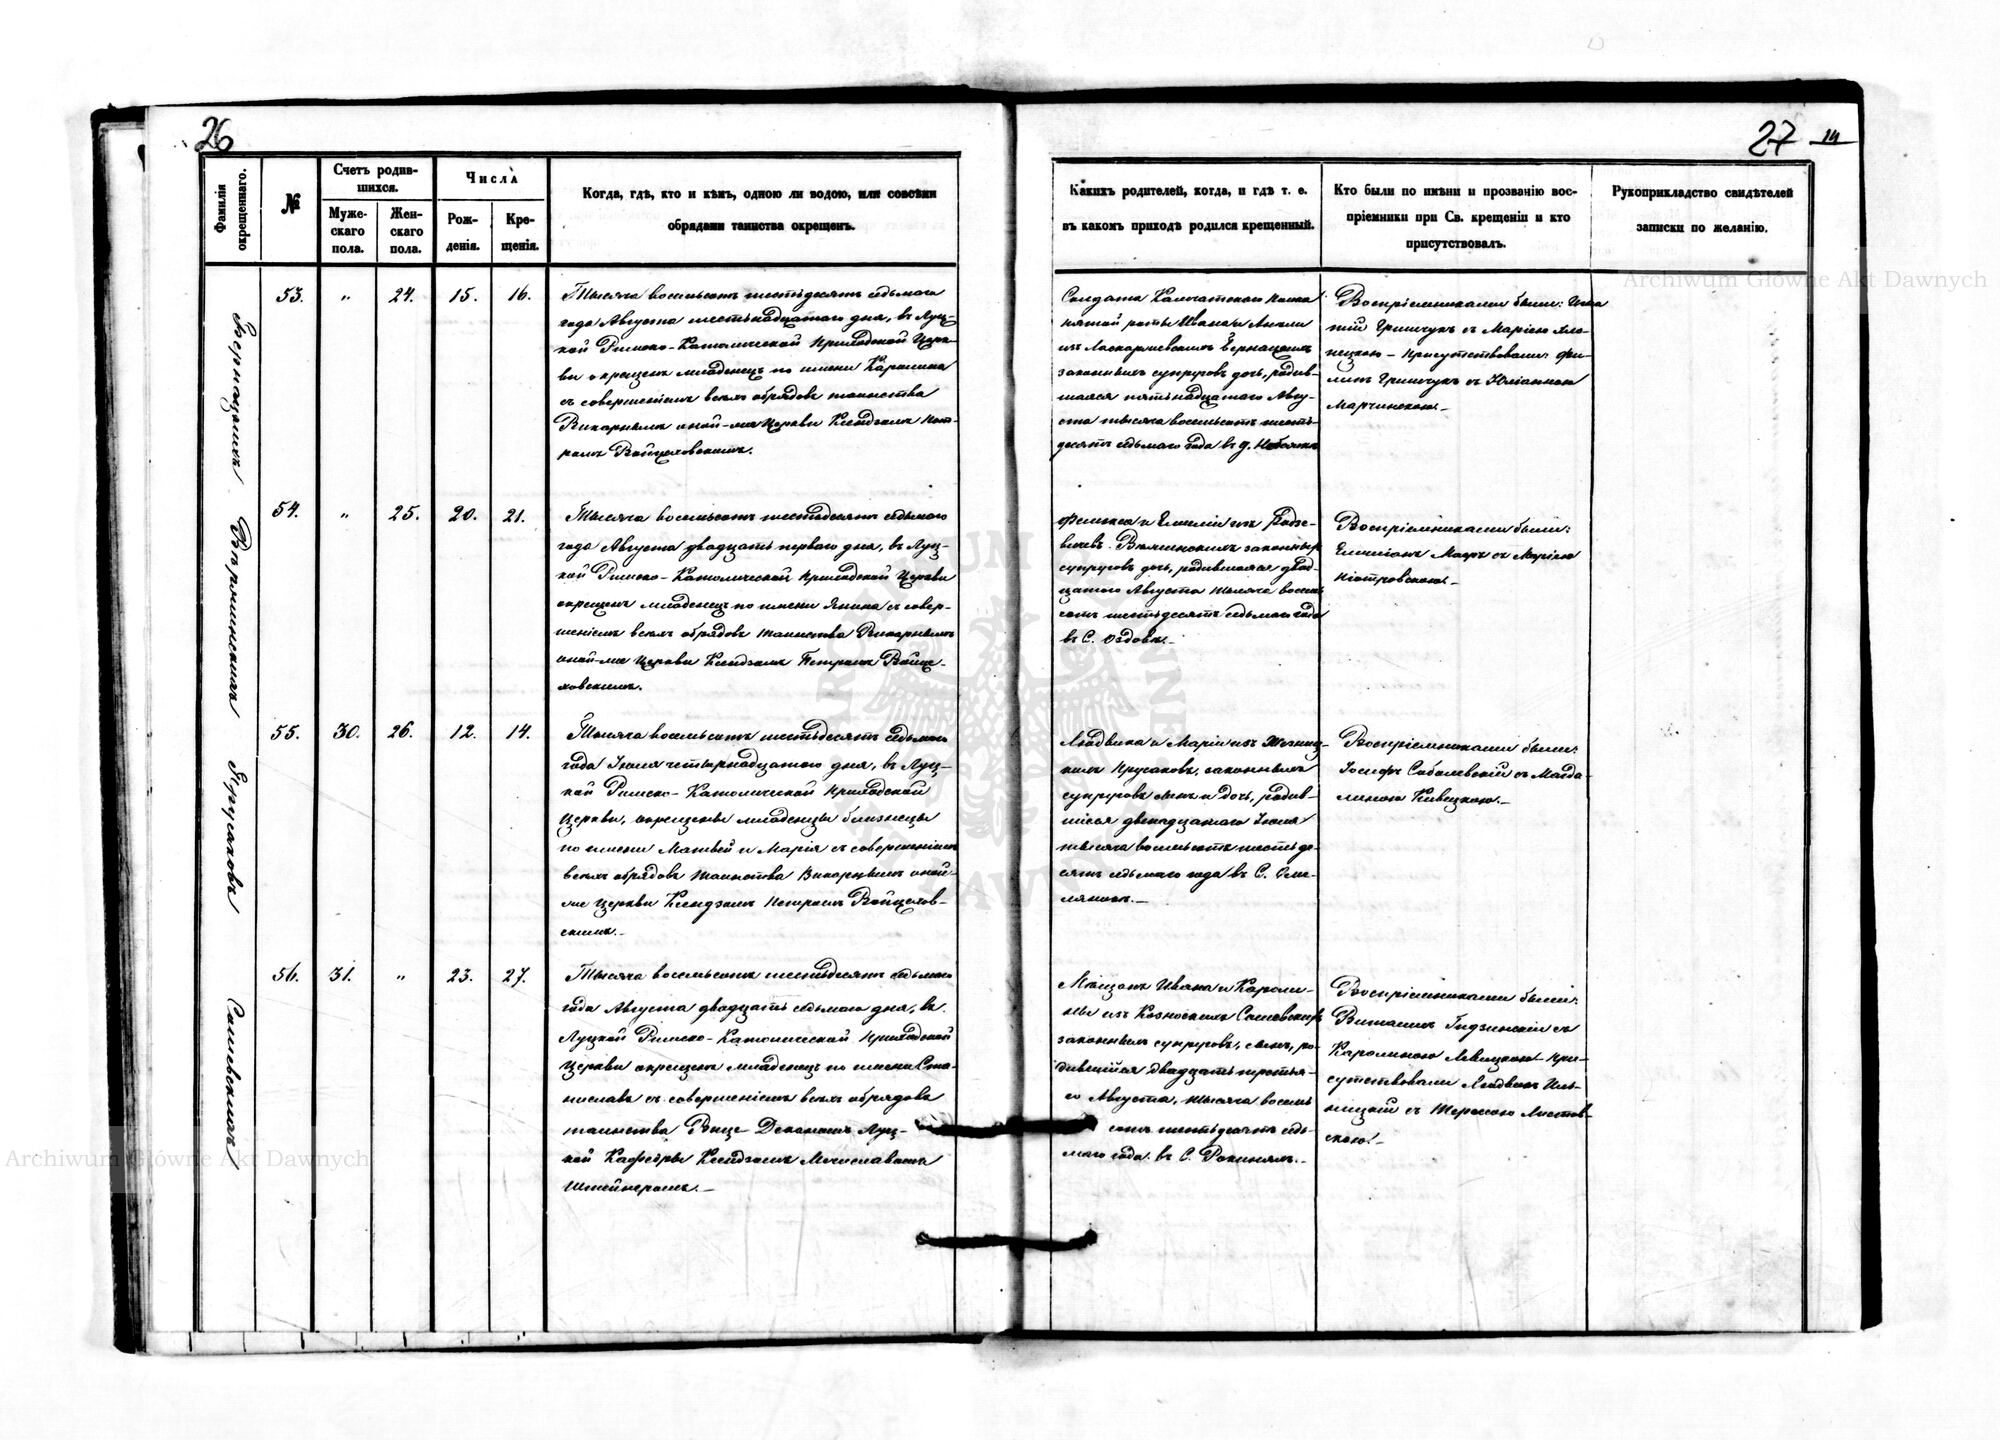 26
Фамилія окрещеннаго.
№
Счетъ родив-
шихся.
Муже-
скаго
пола.
Жен-
скаго
пола.
Числа
Рож-
денія.
Кре-
щенія.
Когда, гдѣ, кто и кѣмъ, одною ли водою, или совсѣми
обрядами таинства окрещенъ.
53. " 24. 15. 16.
Тысяча восемьсотъ шестьдесятъ седьмаго
года Августа шестьнадцатаго дня, въ Луц-
кой Римско-Католической Приходской Церк-
ви окрещенъ младенецъ по имени Каролина
съ совершеніемъ всѣхъ обрядовъ таинства
Викарнымъ оной-же Церкви Ксендзомъ Пет-
ромъ Войцеховскимъ.
54. " 25. 20. 21.
Тысяча восемьсотъ шестьдесятъ седьмаго
года Августа двадцать перваго дня, въ Луц-
кой Римско-Католической Приходской Церкви
окрещенъ младенецъ по имени Янина съ совер-
шеніемъ всѣхъ обрядовъ таинства Викарнымъ
оной-же Церкви Ксендзомъ Петромъ Войце-
ховскимъ.
55. 30. 26. 12. 14.
Тысяча восемьсотъ шестьдесятъ седьмаго
года Іюля четырнадцатаго дня, въ Луц-
кой Римско-Католической Приходской
Церкви, окрещены младенцы близнецы
по имени Матвей и Марія съ совершеніемъ
всѣхъ обрядовъ таинства Викарнымъ оной-
же Церкви Ксендзомъ Петромъ Войцехов-
скимъ.
56. 31. " 23. 27.
Тысяча восемьсотъ шестьдесятъ седьмаго
года Августа двадцать седьмаго дня, въ
Луцкой Римско-Католической Приходской
Церкви окрещенъ младенецъ по имени Ста-
ниславъ съ совершеніемъ всѣхъ обрядовъ
таинства Вице Деканомъ Луц-
кой Кафедры Ксендзомъ Мечиславомъ
Штейнеромъ.
27
14
Какихъ родителей, когда, и гдѣ т. е.
въ какомъ приходѣ родился крещенный.
Кто были по имѣни и прозванію вос-
пріемники при Св. крещеніи и кто
присутствовалъ.
Рукоприкладство свидѣтелей
записки по желанію.
Солдата Камчатскаго полка
пятой роты Ивана и Анели
изъ
законныхъ супруговъ дочь, родив-
шаяся пятьнадцатаго Авгу-
ста тысяча восемьсотъ шесть-
десятъ седьмаго года въ д.
Воспріемниками были: Игна
тій Гринчукъ съ Маріею
присутствовали Фи-
липъ Гринчукъ съ Юліанною
Марчинскою.
Феликса и Емиліи изъ
законныхъ
супруговъ дочь, родившаяся двад-
цатаго Августа тысяча восемь
сотъ шестьдесятъ седьмаго года
въ С. Оздовъ.
Воспріемниками были:
Маеръ съ Маріею
Піотровскою.
Людвика и Маріи изъ
Прусаковъ, законныхъ
супруговъ сынъ и дочь, родив-
шіеся двенадцатаго Іюля
тысяча восемьсотъ шестьде-
сятъ седьмаго года въ С.
Воспріемниками были:
Іосифъ Соболевскій съ Магда-
леною Кивецкою.
Мѣщанъ Ивана и Кароли-
ны изъ
законныхъ супруговъ, сынъ, ро-
дившійся двадцать третья-
го Августа, тысяча восемь
сотъ шестьдесятъ седь-
маго года въ С. Рокиняхъ.
Воспріемниками были:
Гудзинскій съ
Каролиною Левицкою при-
сутствовали Людвикъ Иль-
ницкій съ Терезою Листов-
скою.
Archiwum Główne Akt Dawnych
Archiwum Główne Akt Dawnych